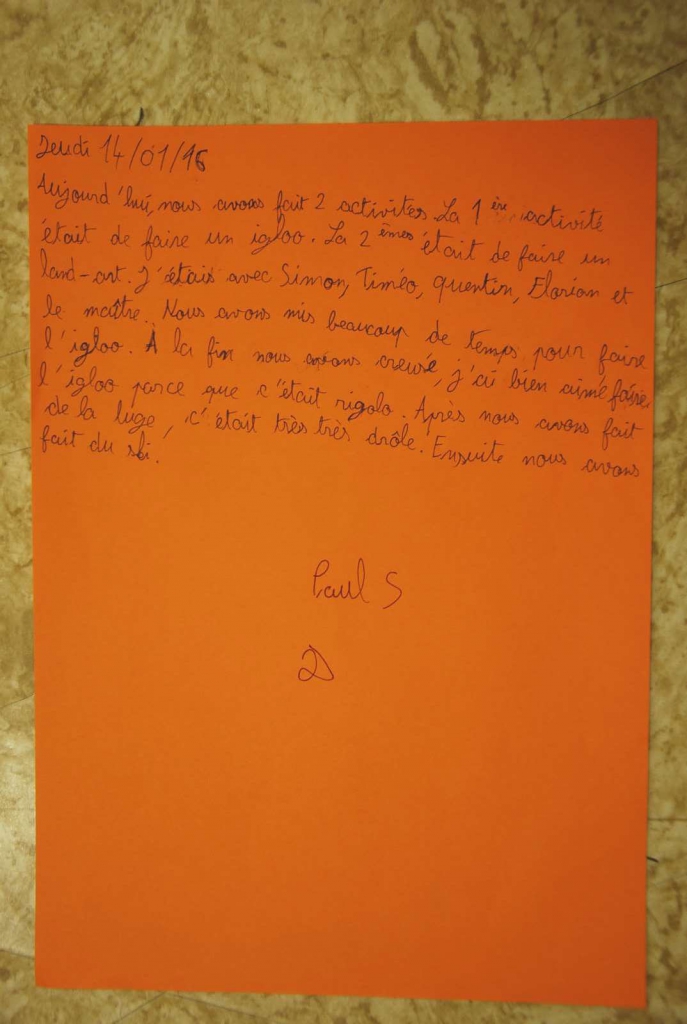 Jeudi 14/01/16
Aujourd'hui, nous avons fait 2 activités. La 1 ère activité
était de faire un igloo. La 2 èmes était de faire un
land-art. J'étais avec Simon, Timéo, Quentin, Florian et
le maître. Nous avons mis beaucoup de temps pour faire
l'igloo. À la fin nous avons creusé, j'ai bien aimé faire
l'igloo parce que c'était rigolo. Après nous avons fait
de la luge, c'était très très drôle. Ensuite nous avons
fait du ski.
Paul S